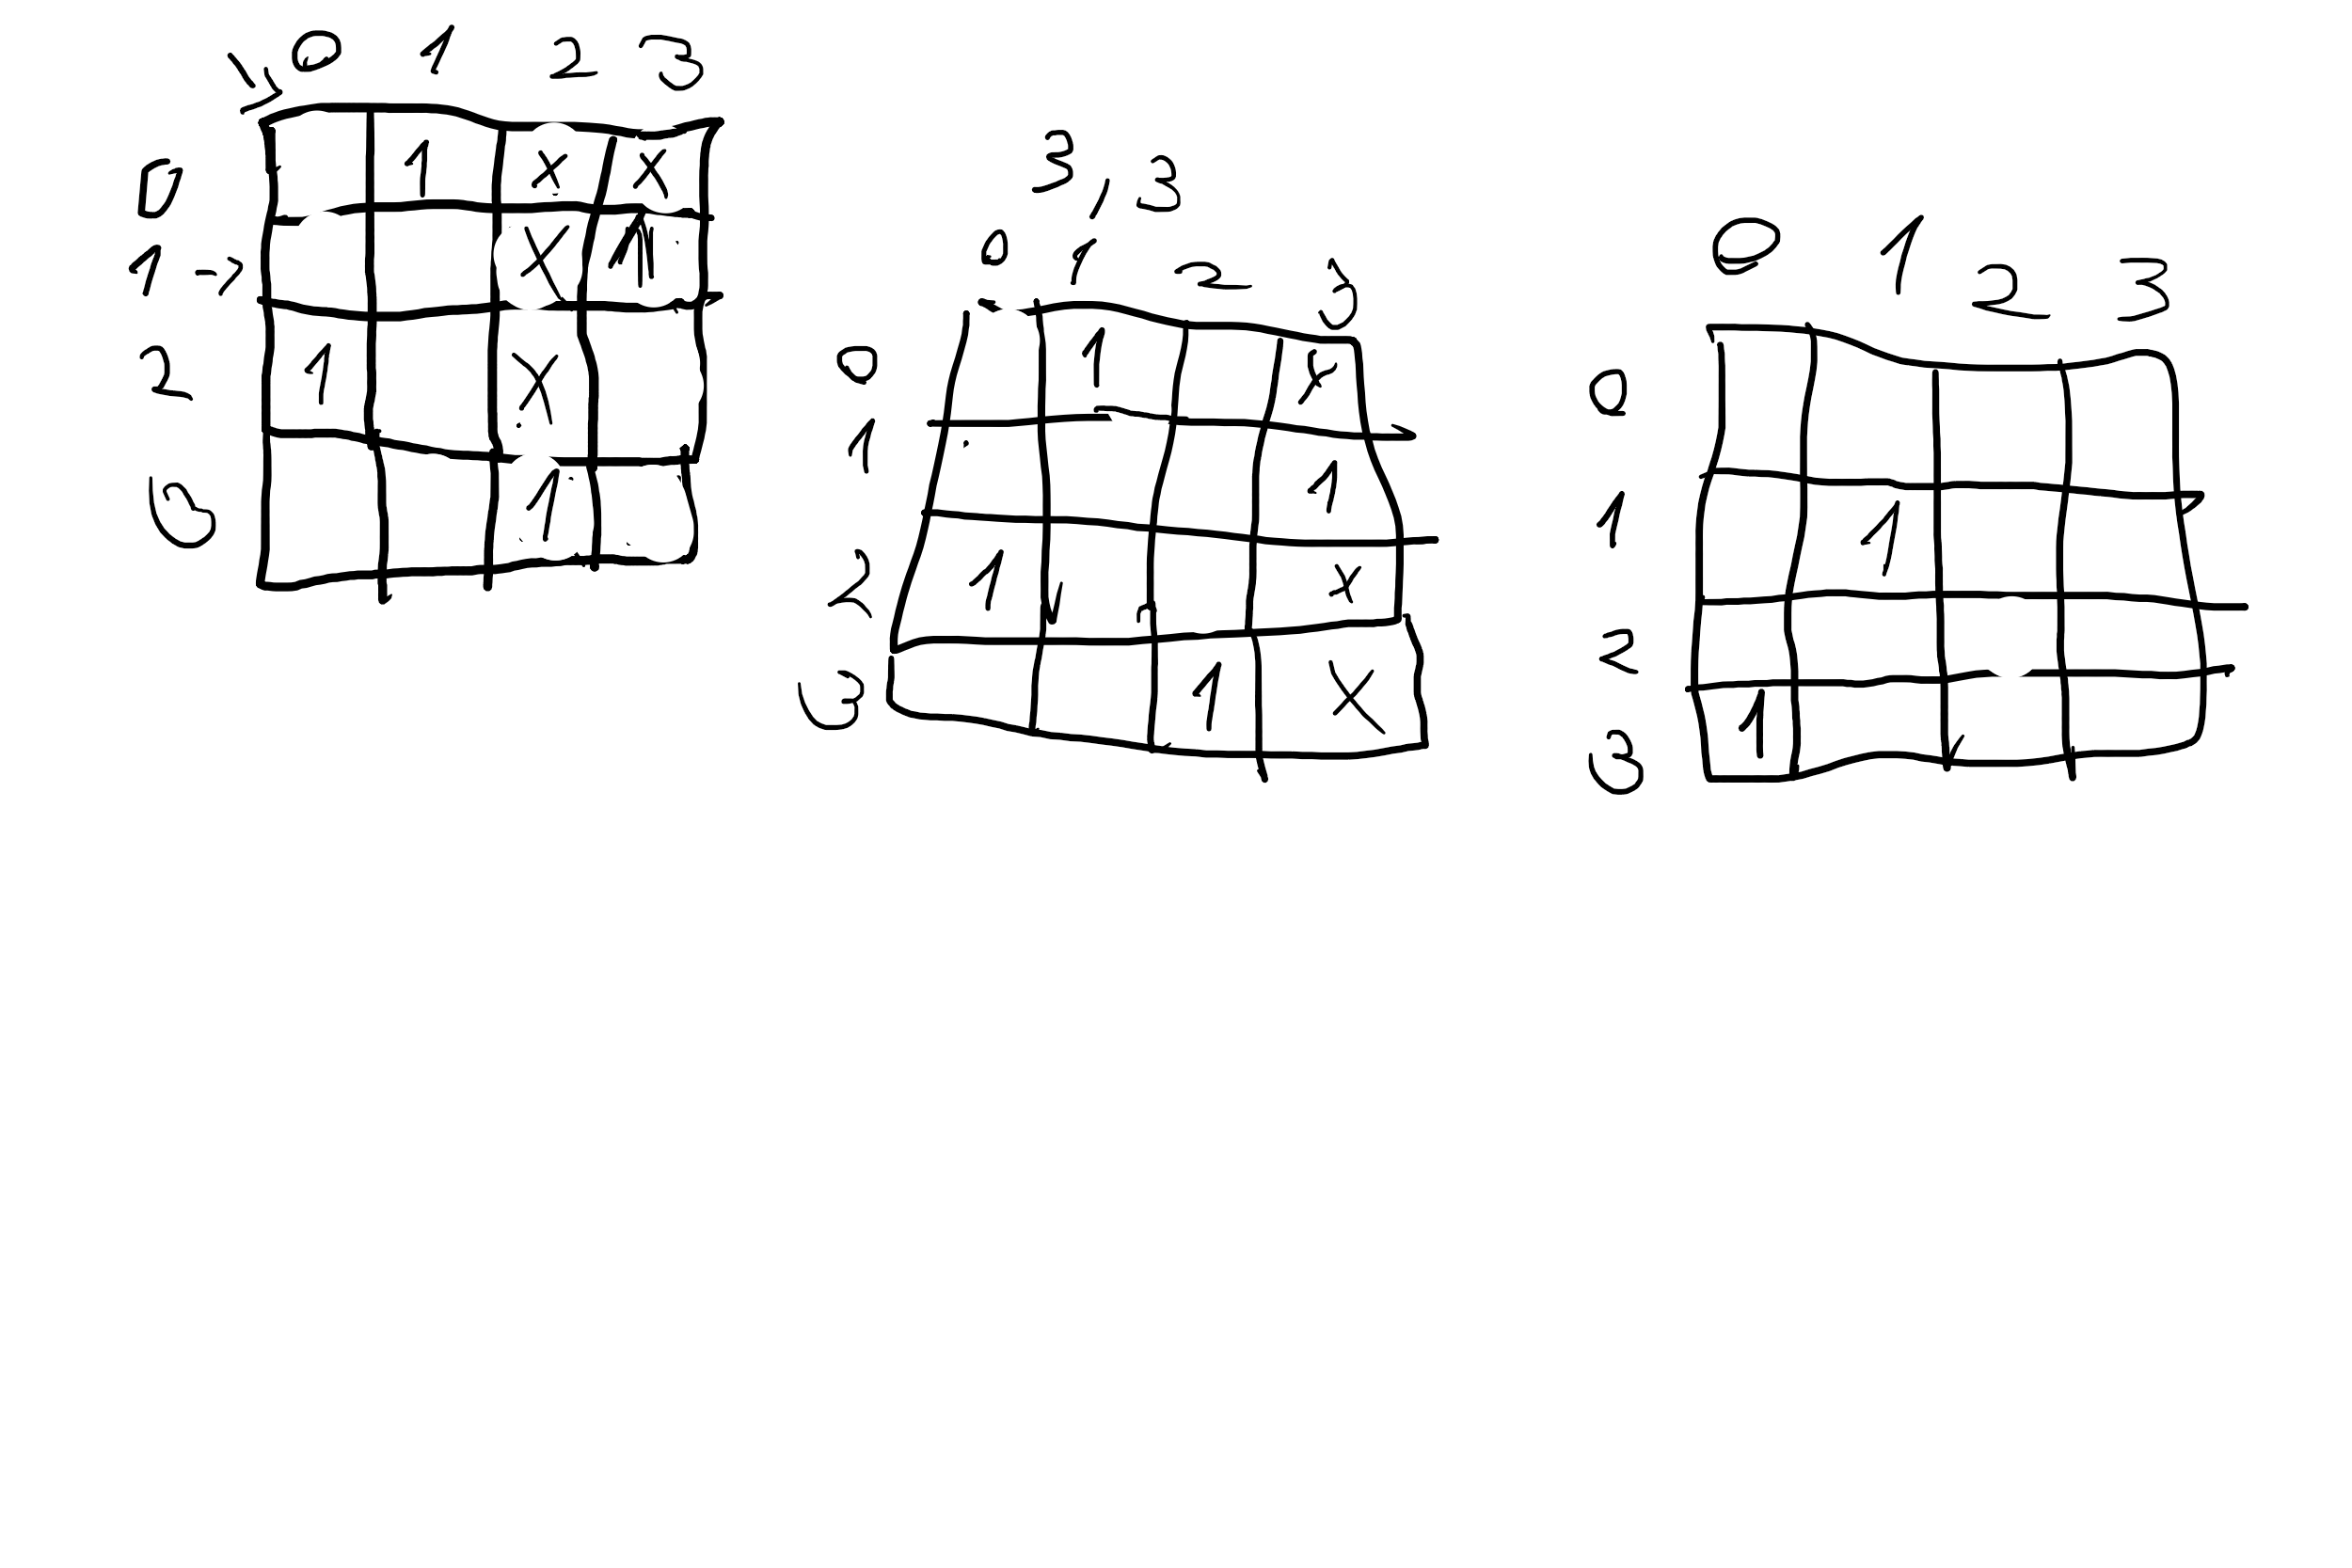 0 1 2 3
0 1 x x
1 -> x 1
2 1 x
3 1
3,3
0 1 2 3
0 1 x
1 1
2 1 x
3 1 x
0 1 2 3
0
1 1
2
3 1